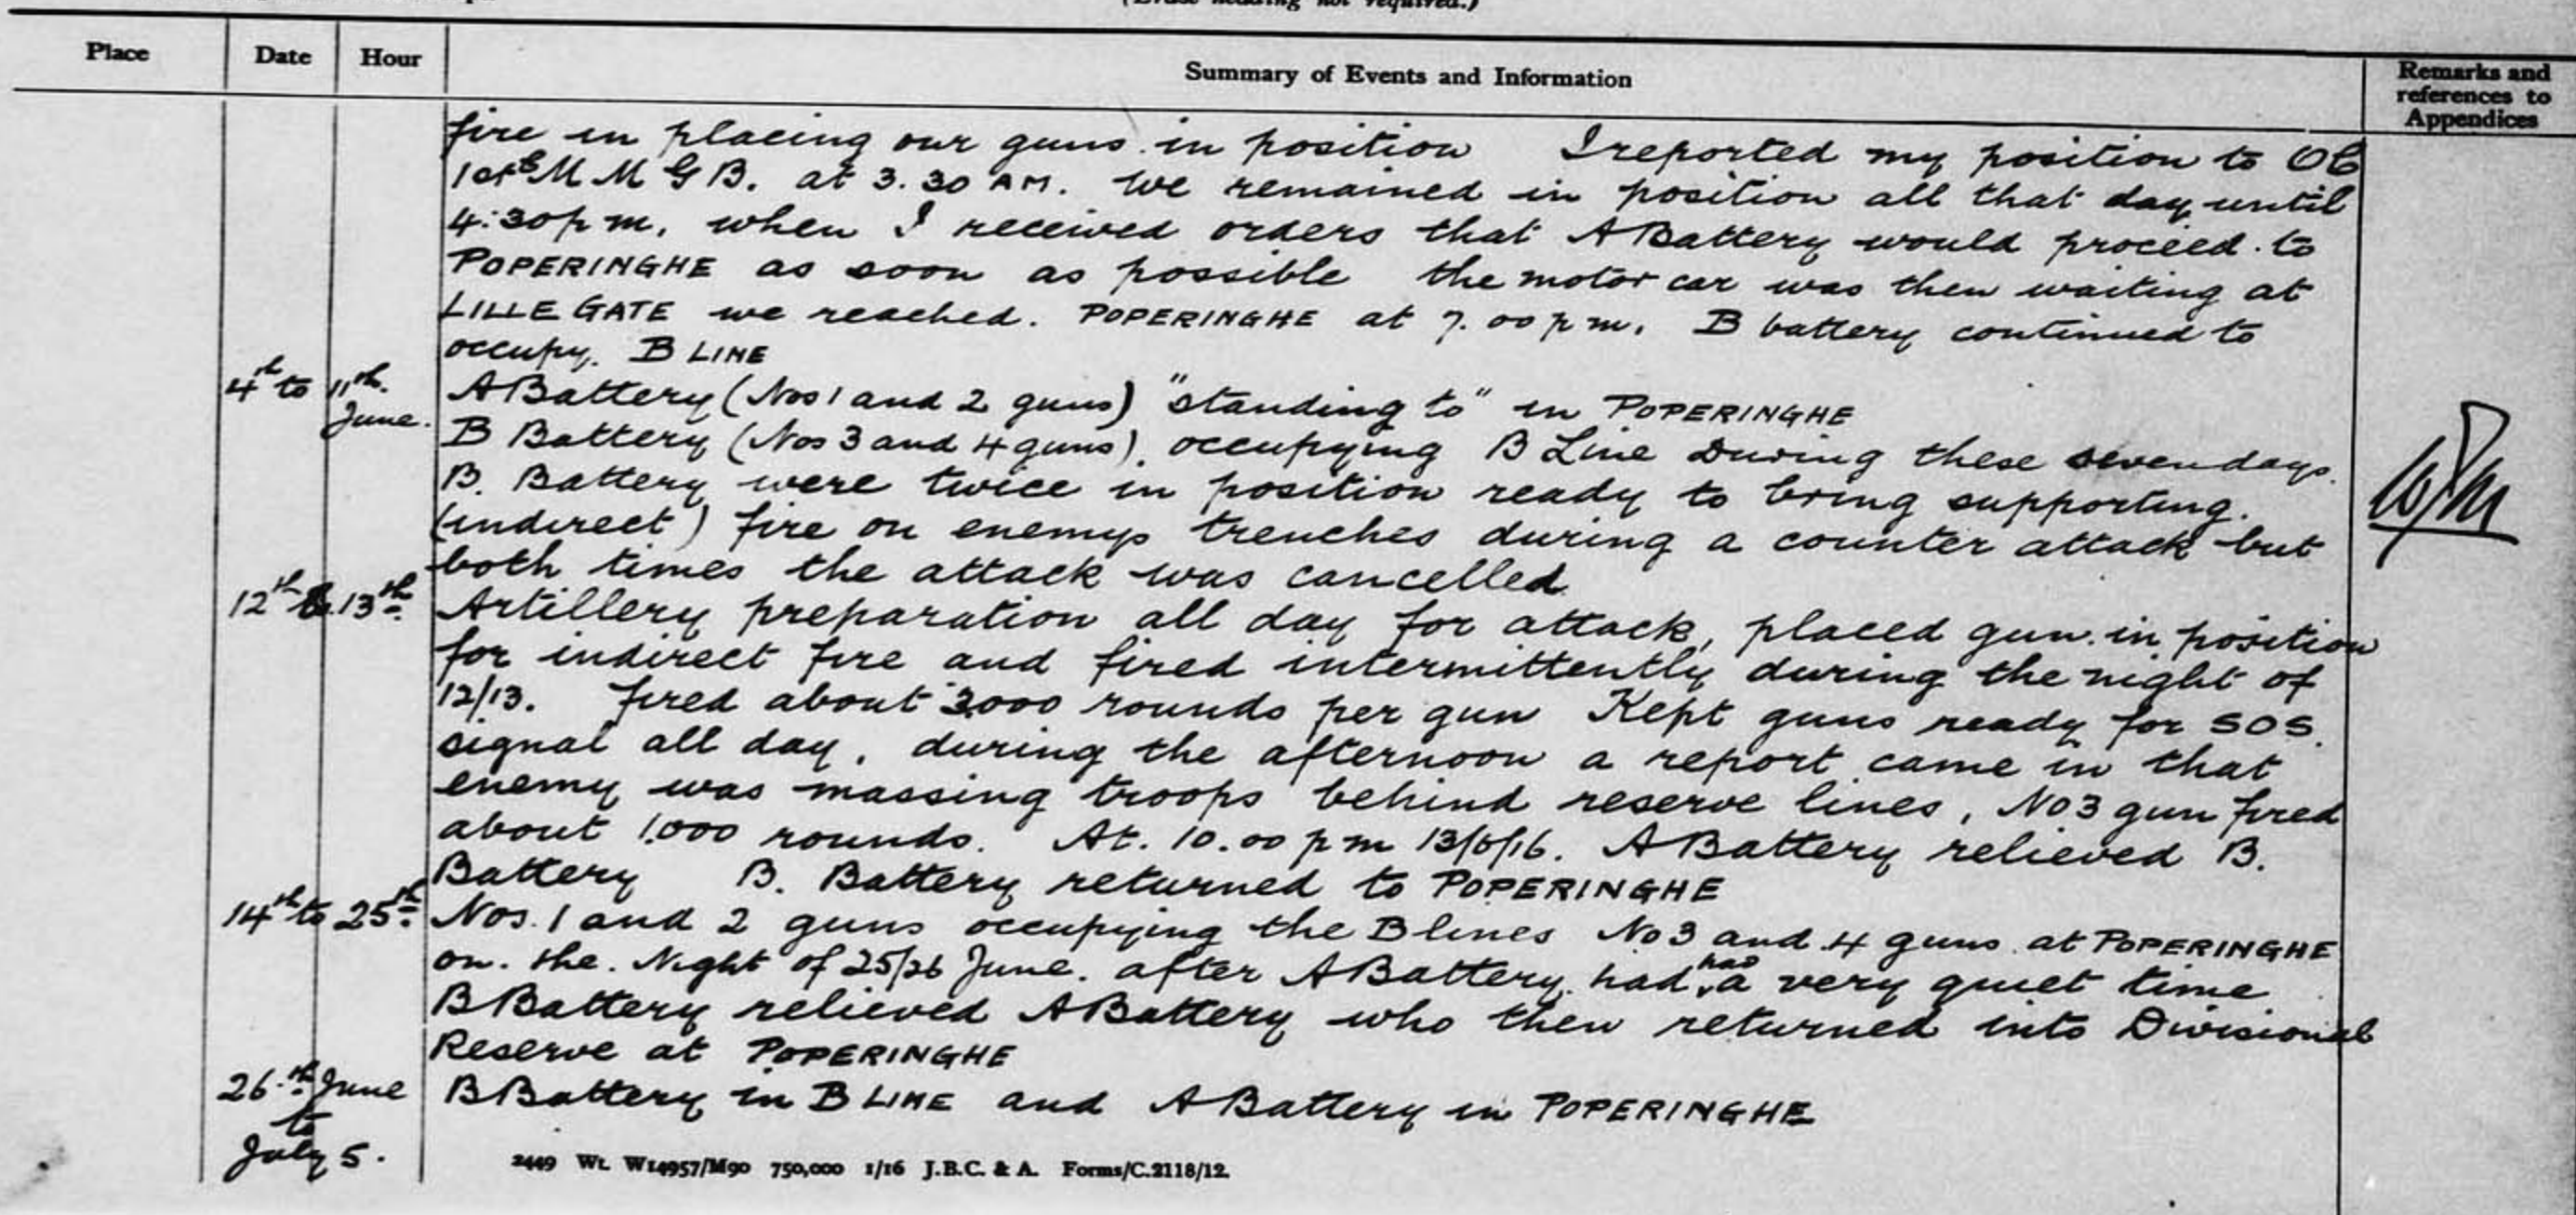 (Erase heading not required.)
Place Date Hour Summary of Events and Information Remarks and references to Appendices
fire in placing our guns in position I reported my position to OC
1st M M G B. at 3.30 AM. We remained in position all that day until
4:30 pm. when I received orders that A Battery would proceed to
POPERINGHE as soon as possible the motor car was then waiting at
LILLE GATE we reached. POPERINGHE at 7.00 pm. B battery continued to
occupy. B LINE
4th to 11th June. A Battery (Nos 1 and 2 guns) "standing to" in POPERINGHE
B Battery (Nos 3 and 4 guns), occupying B Line During these seven days.
B. Battery were twice in position ready to bring supporting.
(indirect) fire on enemys trenches during a counter attack but
both times the attack was cancelled
12th to 13th. Artillery preparation all day for attack, placed gun in position
for indirect fire and fired intermittently during the night of
12/13. fired about 3000 rounds per gun Kept guns ready for SOS
signal all day, during the afternoon a report came in that
enemy was massing troops behind reserve lines, No 3 gun fired
about 1,000 rounds. At. 10.00 pm 13/6/16. A Battery relieved B.
Battery B. Battery returned to POPERINGHE
14th to 25th. Nos. 1 and 2 guns occupying the B lines No 3 and 4 guns at POPERINGHE
on. the. Night of 25/26 June. after A Battery. had had a very quiet time
B Battery relieved A Battery who then returned into Divisional
Reserve at POPERINGHE
26th June to July 5. B Battery in B LINE and A Battery in POPERINGHE
2449 Wt. W14957/M90 750,000 1/16 J.B.C. & A. Forms/C.2118/12.